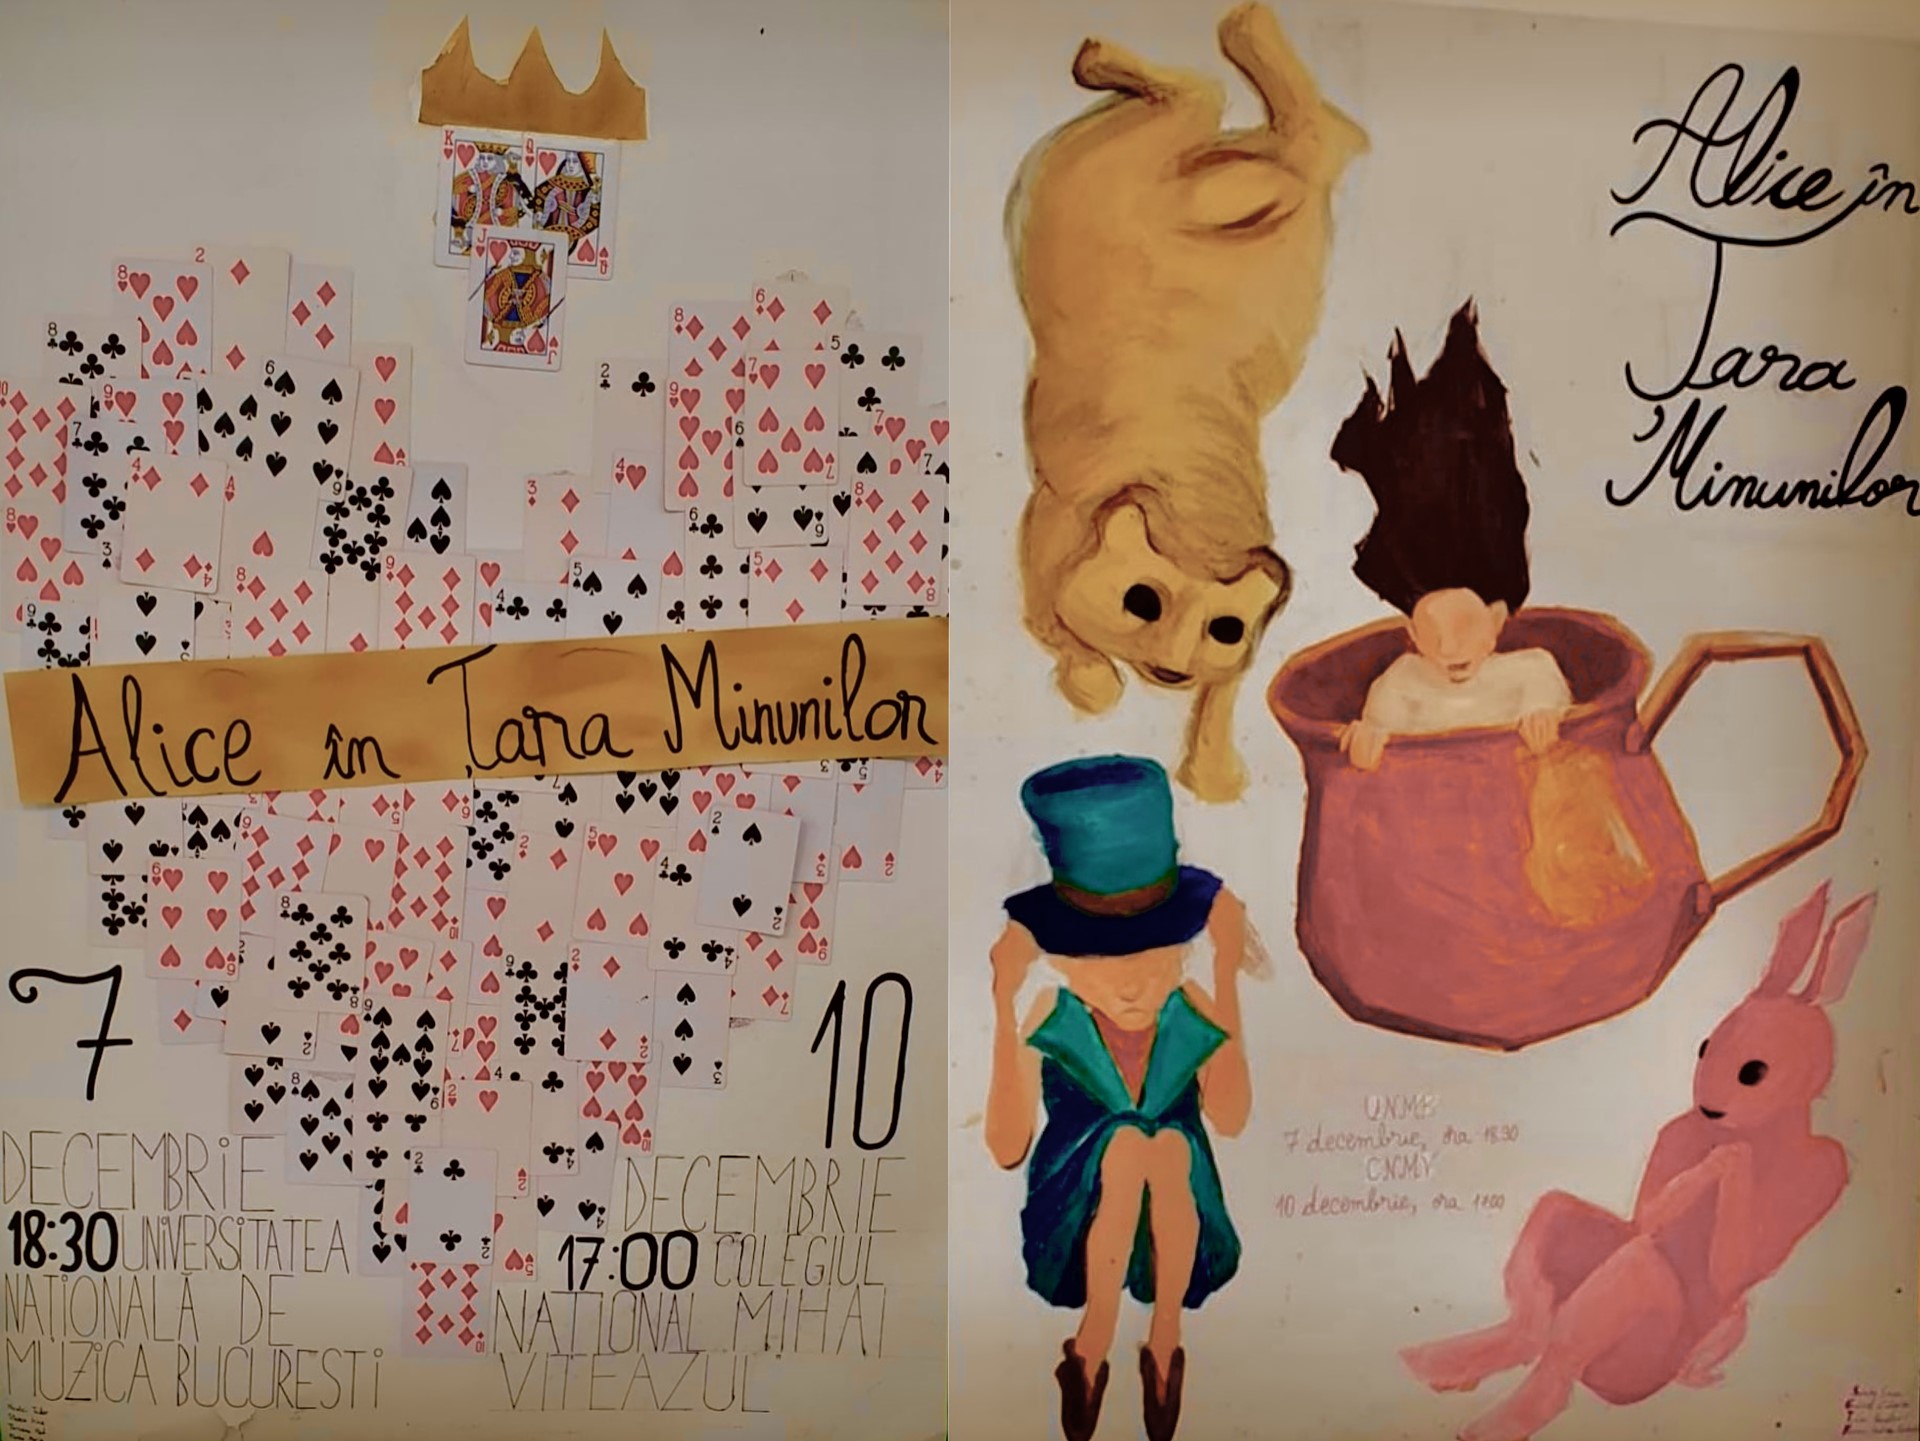 Alice în Țara Minunilor
7
DECEMBRIE
18:30 UNIVERSITATEA
NAȚIONALĂ DE
MUZICA BUCUREȘTI
10
DECEMBRIE
17:00 COLEGIUL
NAȚIONAL MIHAI
VITEAZUL
Alice în
Tara
Minunilor
UNMB
7 decembrie, ora 18:30
CNMV
10 decembrie, ora 17:00